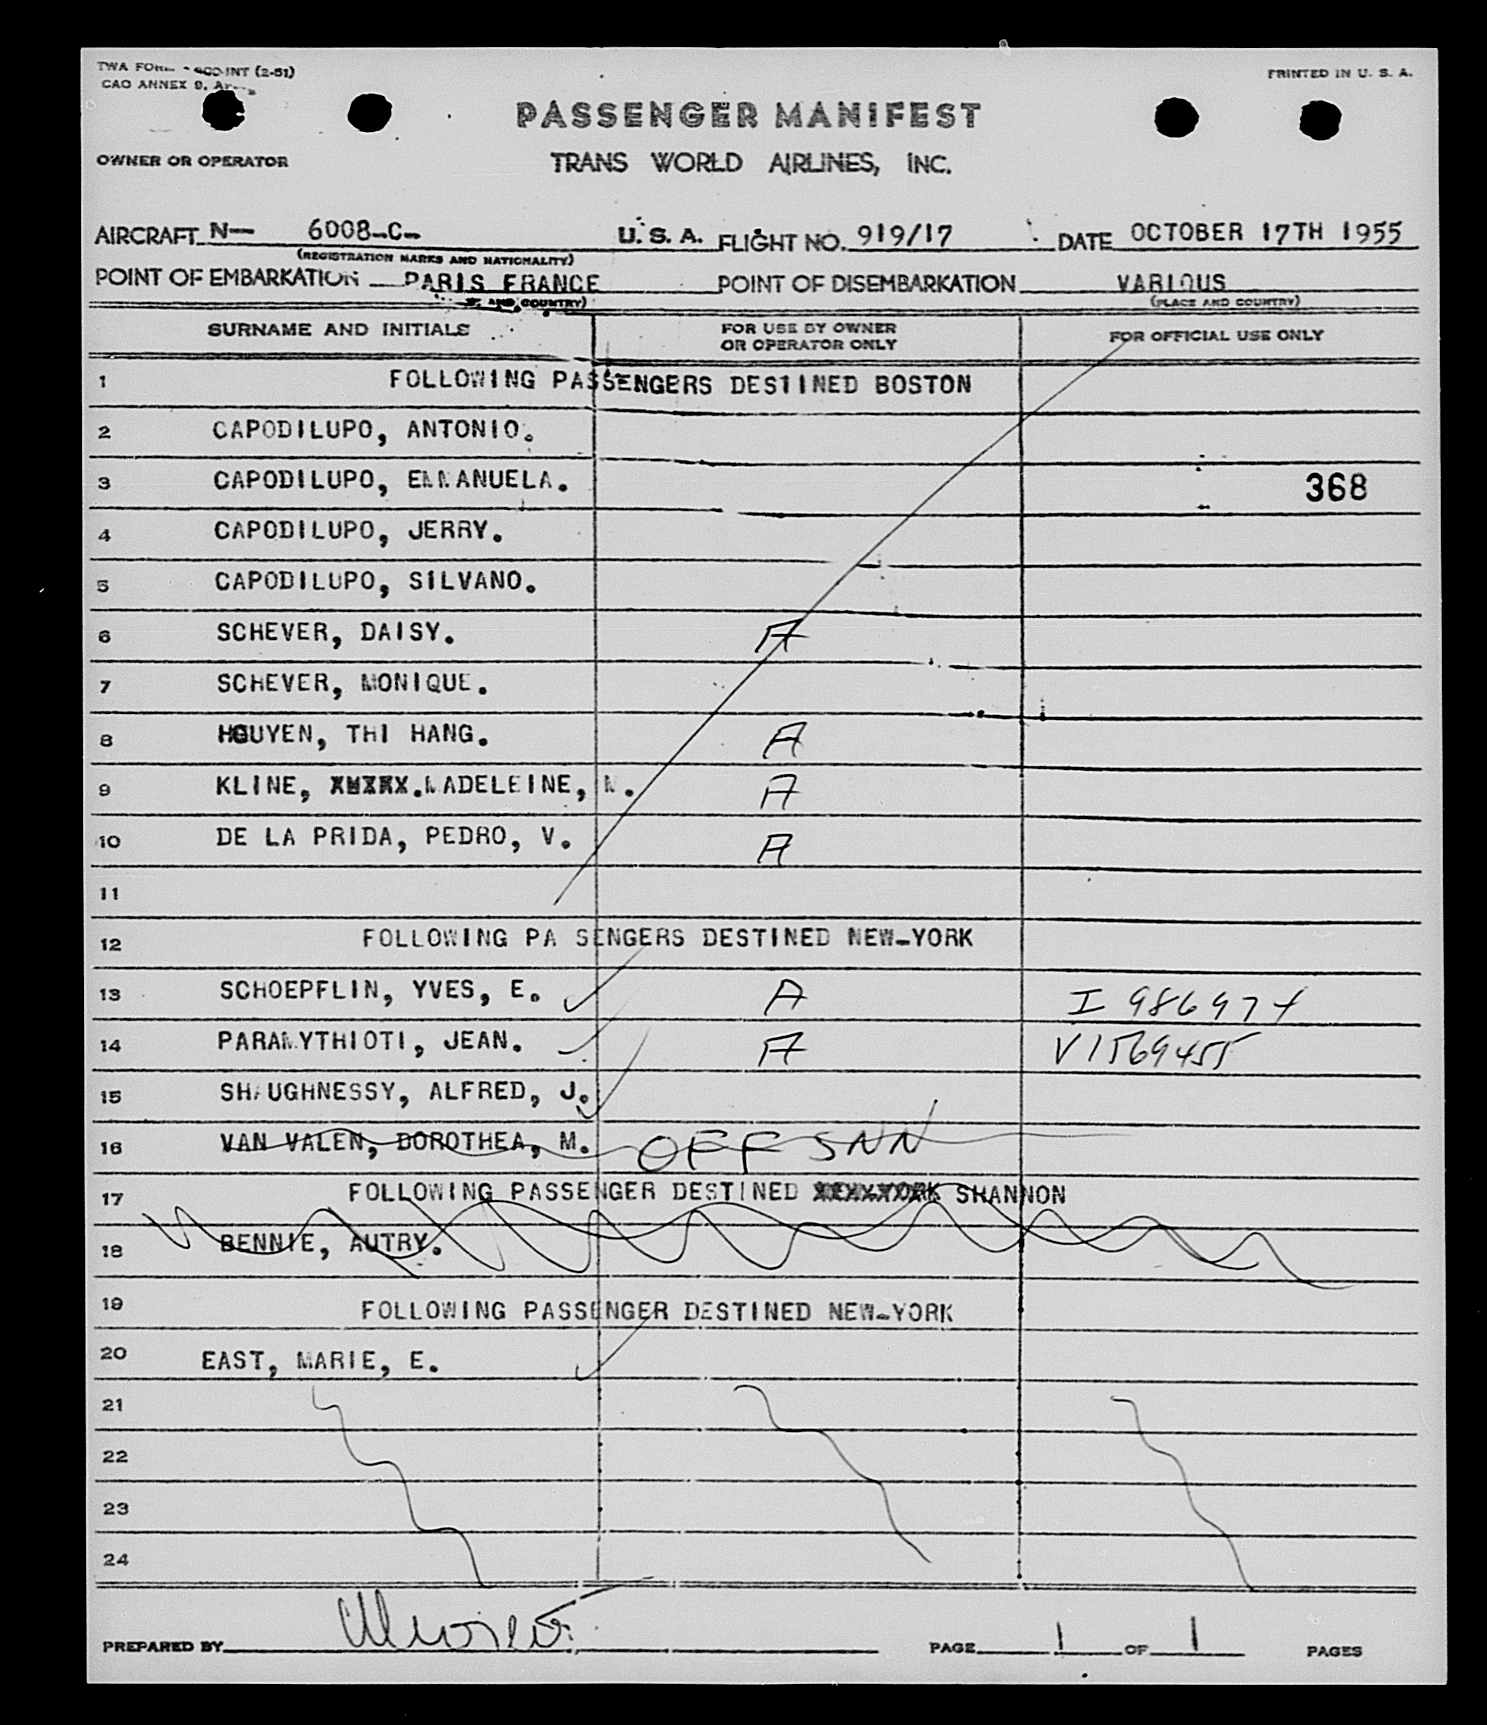 TWA FORM
INT (2-51)
CAO ANNEX 9,
PRINTED IN U. S. A.
PASSENGER MANIFEST
OWNER OR OPERATOR
TRANS WORLD AIRLINES, INC.
AIRCRAFT N— 6008-C- U. S. A. FLIGHT NO. 919/17 DATE OCTOBER 17TH 1955
(REGISTRATION MARKS AND NATIONALITY)
POINT OF EMBARKATION PARIS FRANCE POINT OF DISEMBARKATION VARIOUS
AND COUNTRY) (PLACE AND COUNTRY)
SURNAME AND INITIALS FOR USE BY OWNER OR OPERATOR ONLY FOR OFFICIAL USE ONLY
1 FOLLOWING PASSENGERS DESTINED BOSTON
2 CAPODILUPO, ANTONIO.
3 CAPODILUPO, EMMANUELA. 368
4 CAPODILUPO, JERRY.
5 CAPODILUPO, SILVANO.
6 SCHEVER, DAISY. A
7 SCHEVER, MONIQUE.
8 HGUYEN, THI HANG. A
9 KLINE, MADELEINE, M. A
10 DE LA PRIDA, PEDRO, V. A
11
12 FOLLOWING PA SENGERS DESTINED NEW-YORK
13 SCHOEPFLIN, YVES, E. A I 986974
14 PARAMYTHIOTI, JEAN. A V1569455
15 SHAUGHNESSY, ALFRED, J.
16 VAN VALEN, DOROTHEA, M. OFF SNN
17 FOLLOWING PASSENGER DESTINED SHANNON
18 BENNIE, AUTRY.
19 FOLLOWING PASSENGER DESTINED NEW-YORK
20 EAST, MARIE, E.
21
22
23
24
PREPARED BY PAGE 1 OF 1 PAGES